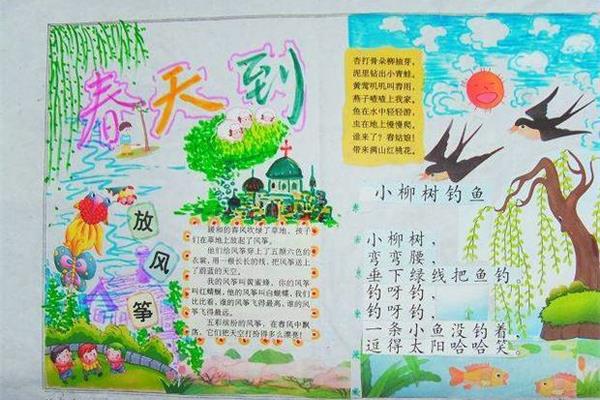 春天到
放
风
筝
暖和的春风吹绿了草地,孩子
们在草地上放起了风筝。
他们给风筝穿上了五颜六色的
衣裳,用一根长长的线,把风筝送上
了蔚蓝的天空。
我的风筝叫黄蜜蜂,你的风筝
叫红蜻蜓,他的风筝叫白蝴蝶,我们
比比看,谁的风筝飞得最高,谁的风
筝飞得最远。
五彩缤纷的风筝,在春风中飘
荡,它们把天空打扮得多么漂亮!
杏打骨朵柳抽芽,
泥里钻出小青蛙。
黄莺叽叽叫春雨,
燕子喳喳上我家。
鱼在水中轻轻游,
虫在地上慢慢爬。
谁来了?春姑娘!
带来满山红桃花。
小柳树钓鱼
小柳树,
弯弯腰,
垂下绿线把鱼钓,
钓呀钓,
钓呀钓,
一条小鱼没钓着,
逗得太阳哈哈笑。